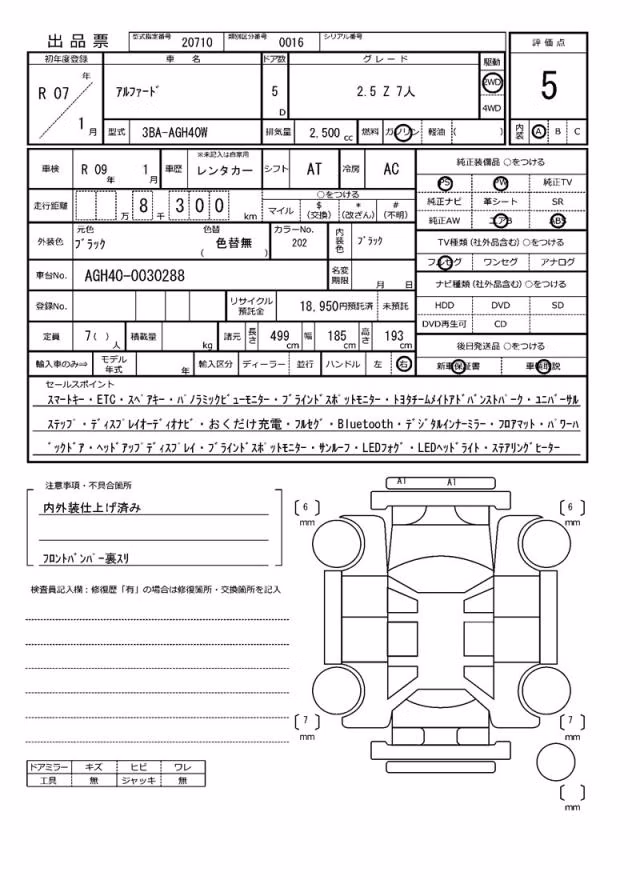 出品票 型式指定番号 20710 類別区分番号 0016 シリアル番号
評価点
5
内装 A B C
初年度登録 車名 ドア数 グレード 駆動
R 07年 1月 アルファード 5D 2.5 Z 7人 2WD 4WD
型式 3BA-AGH40W 排気量 2,500cc 燃料 ガソリン 軽油 ( )
車検 R 09年 1月 車歴 ※未記入は自家用 レンタカー シフト AT 冷房 AC
走行距離 万 8千 3 0 0 km ○をつける
マイル $(交換) *(改ざん) #(不明)
外装色 元色 ブラック 色替 色替無 ( ) カラーNo. 202 内装色 ブラック
車台No. AGH40-0030288 名変期限 月 日
登録No. リサイクル預託金 18,950円預託済 未預託
定員 7( )人 積載量 kg 諸元 長さ 499cm 幅 185cm 高さ 193cm
輸入車のみ⇒ モデル年式 年 輸入区分 ディーラー 並行 ハンドル 左 右
純正装備品 ○をつける
PS PW 純正TV
純正ナビ 革シート SR
純正AW エアB ABS
TV種類(社外品含む)○をつける
フルセグ ワンセグ アナログ
ナビ種類(社外品含む)○をつける
HDD DVD SD
DVD再生可 CD
後日発送品 ○をつける
新車保証書 車輌取説
セールスポイント
スマートキー・ETC・スペアキー・パノラミックビューモニター・ブラインドスポットモニター・トヨタチームメイトアドバンストパーク・ユニバーサル
ステップ・ディスプレイオーディオナビ・おくだけ充電・フルセグ・Bluetooth・デジタルインナーミラー・フロアマット・パワーバ
ックドア・ヘッドアップディスプレイ・ブラインドスポットモニター・サンルーフ・LEDフォグ・LEDヘッドライト・ステアリングヒーター
注意事項・不具合箇所
内外装仕上げ済み
フロントバンパー裏スリ
検査員記入欄:修復歴「有」の場合は修復箇所・交換箇所を記入
A1 A1
[ 6 ] mm [ 6 ] mm
[ 7 ] mm [ 7 ] mm
[ ] mm
ドアミラー キズ ヒビ ワレ
工具 無 ジャッキ 無